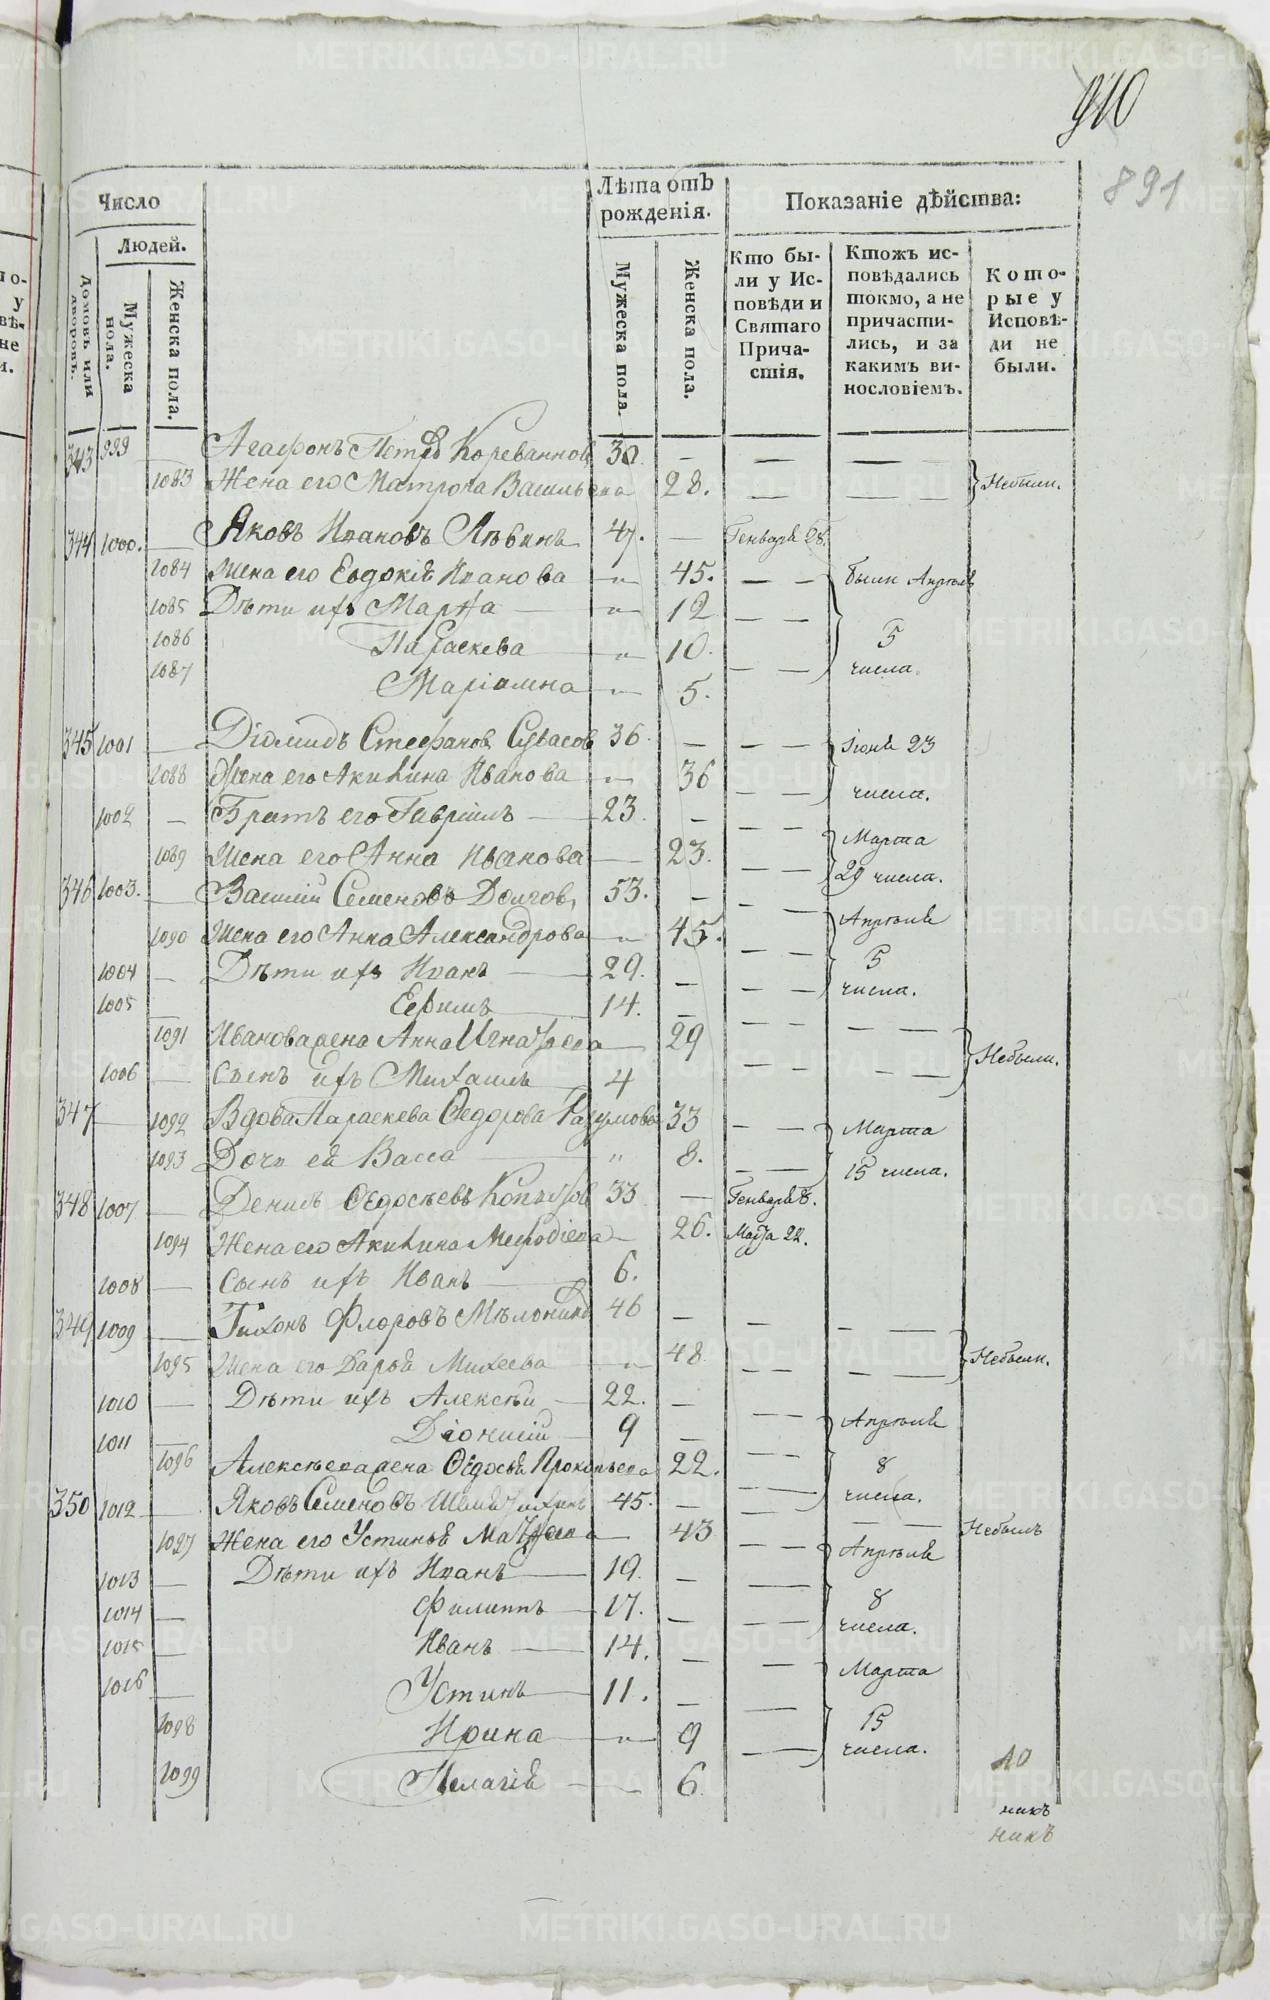 910
891
Число
Людей.
Домовъ или дворовъ.
Мужеска пола.
Женска пола.
Лѣта отъ рожденія.
Мужеска пола.
Женска пола.
Показаніе дѣйства:
Кто бы-
ли у Ис-
повѣди и
Святаго
Прича-
стія.
Ктожъ ис-
повѣдались
токмо, а не
причасти-
лись, и за
какимъ ви-
нословіемъ.
Кото-
рые у
Исповѣ-
ди не
были.
343 999 — Агафонъ Петровъ Кореванновъ 30 — — —
1083 Жена его Матрона Васильева 28. — — Небыли.
344 1000. — Яковъ Ивановъ Лябинъ 47. — Генваря 28.
1084 Жена его Евдокія Иванова — 45. — — были Апрѣля
1085 Дѣти ихъ Марѳа — 12 — — 5
1086 Параскева — 10. числа.
1087 Маріамна — 5.
345 1001 — Діомидъ Стефановъ 36. — — — Іюня 23
1088 Жена его Акилина Иванова — 36 — — числа.
1002 — Братъ его Гавріилъ — 23. — — — Марта
1089 Жена его Анна Иванова — 23. — — 29 числа.
346 1003. — Василій Семеновъ Долговъ, 53. — — — Апрѣля
1090 Жена его Анна Александрова — 45. — — 5
1004 — Дѣти ихъ Иванъ — 29. — — — числа.
1005 — Ефимъ 14. —
1091 Иванова жена Анна Игнатьева — 29 — — Небыли.
1006 — Сынъ ихъ Михаилъ — 4
347 — 1092 Вдова Параскева Ѳедорова Разумова 33 — — Марта
1093 Дочь ея Васса — 8. — — 15 числа.
348 1007 — Денисъ Ѳедосѣевъ Копытовъ 33 — Генваря 8.
1094 Жена его Акилина Меѳодіева — 26. Маія 22.
1008 — Сынъ ихъ Иванъ — 6.
349 1009 — Тихонъ Флоровъ 46 — — — —
1095 Жена его Дарья Михеева — 48 — — — Небыли.
1010 — Дѣти ихъ Алексѣй — 22. — — Апрѣля
1011 — Діонисій — 9 — — 8
1096 Алексѣева жена Ѳедосья Прокопьева 22. — — числа.
350 1012 — Яковъ Семеновъ 45. — — — Небылъ
1097 Жена его Устинья Матѳеева — 43 — — Апрѣля
1013 — Дѣти ихъ Иванъ — 19. — — 8
1014 — Филиппъ — 17. — — числа.
1015 — Иванъ — 14. — — Марта
1016 — Устинъ — 11. — — 15
1098 Ирина — 9 — — числа.
1099 Пелагія — 6.
10
никъ
никъ
METRIKI.GASO-URAL.RU